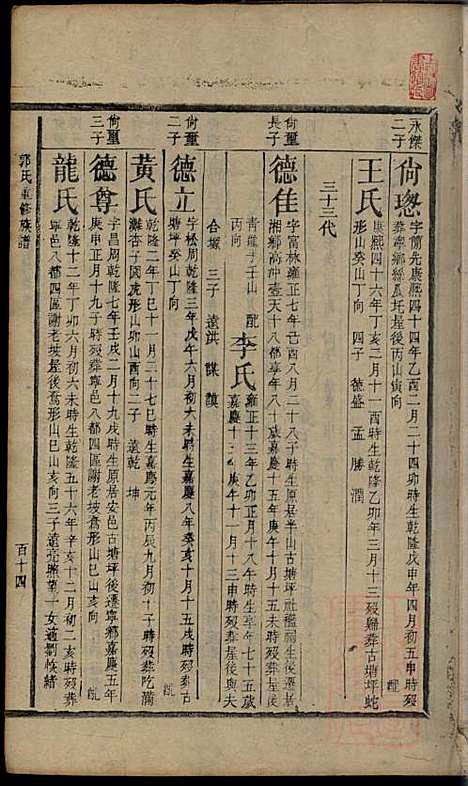 永傑
二子
尙璁
字簡先康熙四十四年乙酉二月二十四卯時生乾隆戊申年四月初五申時歿
葬寧鄉縣瓜圫屋後丙山寅向 配
王氏
康熙四十六年丁亥二月十一酉時生乾隆乙卯年三月十三歿歸葬古塘坪蛇
形山癸山丁向 四子 德盛 孟 勝 潤
三十三代
尙璽
長子
德佳
字富林雍正七年己酉八月二十八子時生原居羊山古塘坪社
湘鄉高沖壺天十八都享年八十歲嘉慶十五年庚午十月十五未時歿葬屋後
青龍子壬山丙向 配
李氏
雍正十三年乙卯正月十八午時生享年七十五歲
嘉慶十二庚午十一月十三申時歿葬屋後與夫
合墳 三子 遠洪 謀 謨
尙璽
二子
德立
字松周乾隆三年戊午六月初九卯時生嘉慶八年癸亥十月十五戌時歿葬古
塘坪癸山丁向 配
黃氏
乾隆二年丁巳十一月三十七巳時生嘉慶元年丙辰九月初十子時歿葬圫灣
虎形 山丁向 二子 遠乾 坤
尙璽
三子
德尊
字昌周乾隆七年壬戌二月十九戌時生原居安邑古塘坪後遷寧鄉嘉慶五年
庚申正月十九子時歿葬寧邑八都四區謝老坡鴦形山巳山亥向 配
龍氏
乾隆十二年丁卯六月初六未時生乾隆五十六年辛亥十二月初二亥時歿葬
寧邑八都四區謝老坡屋後鴦形山巳山亥向三子遠亮照 一女適劉恢緒
郭氏重修族譜
百十四